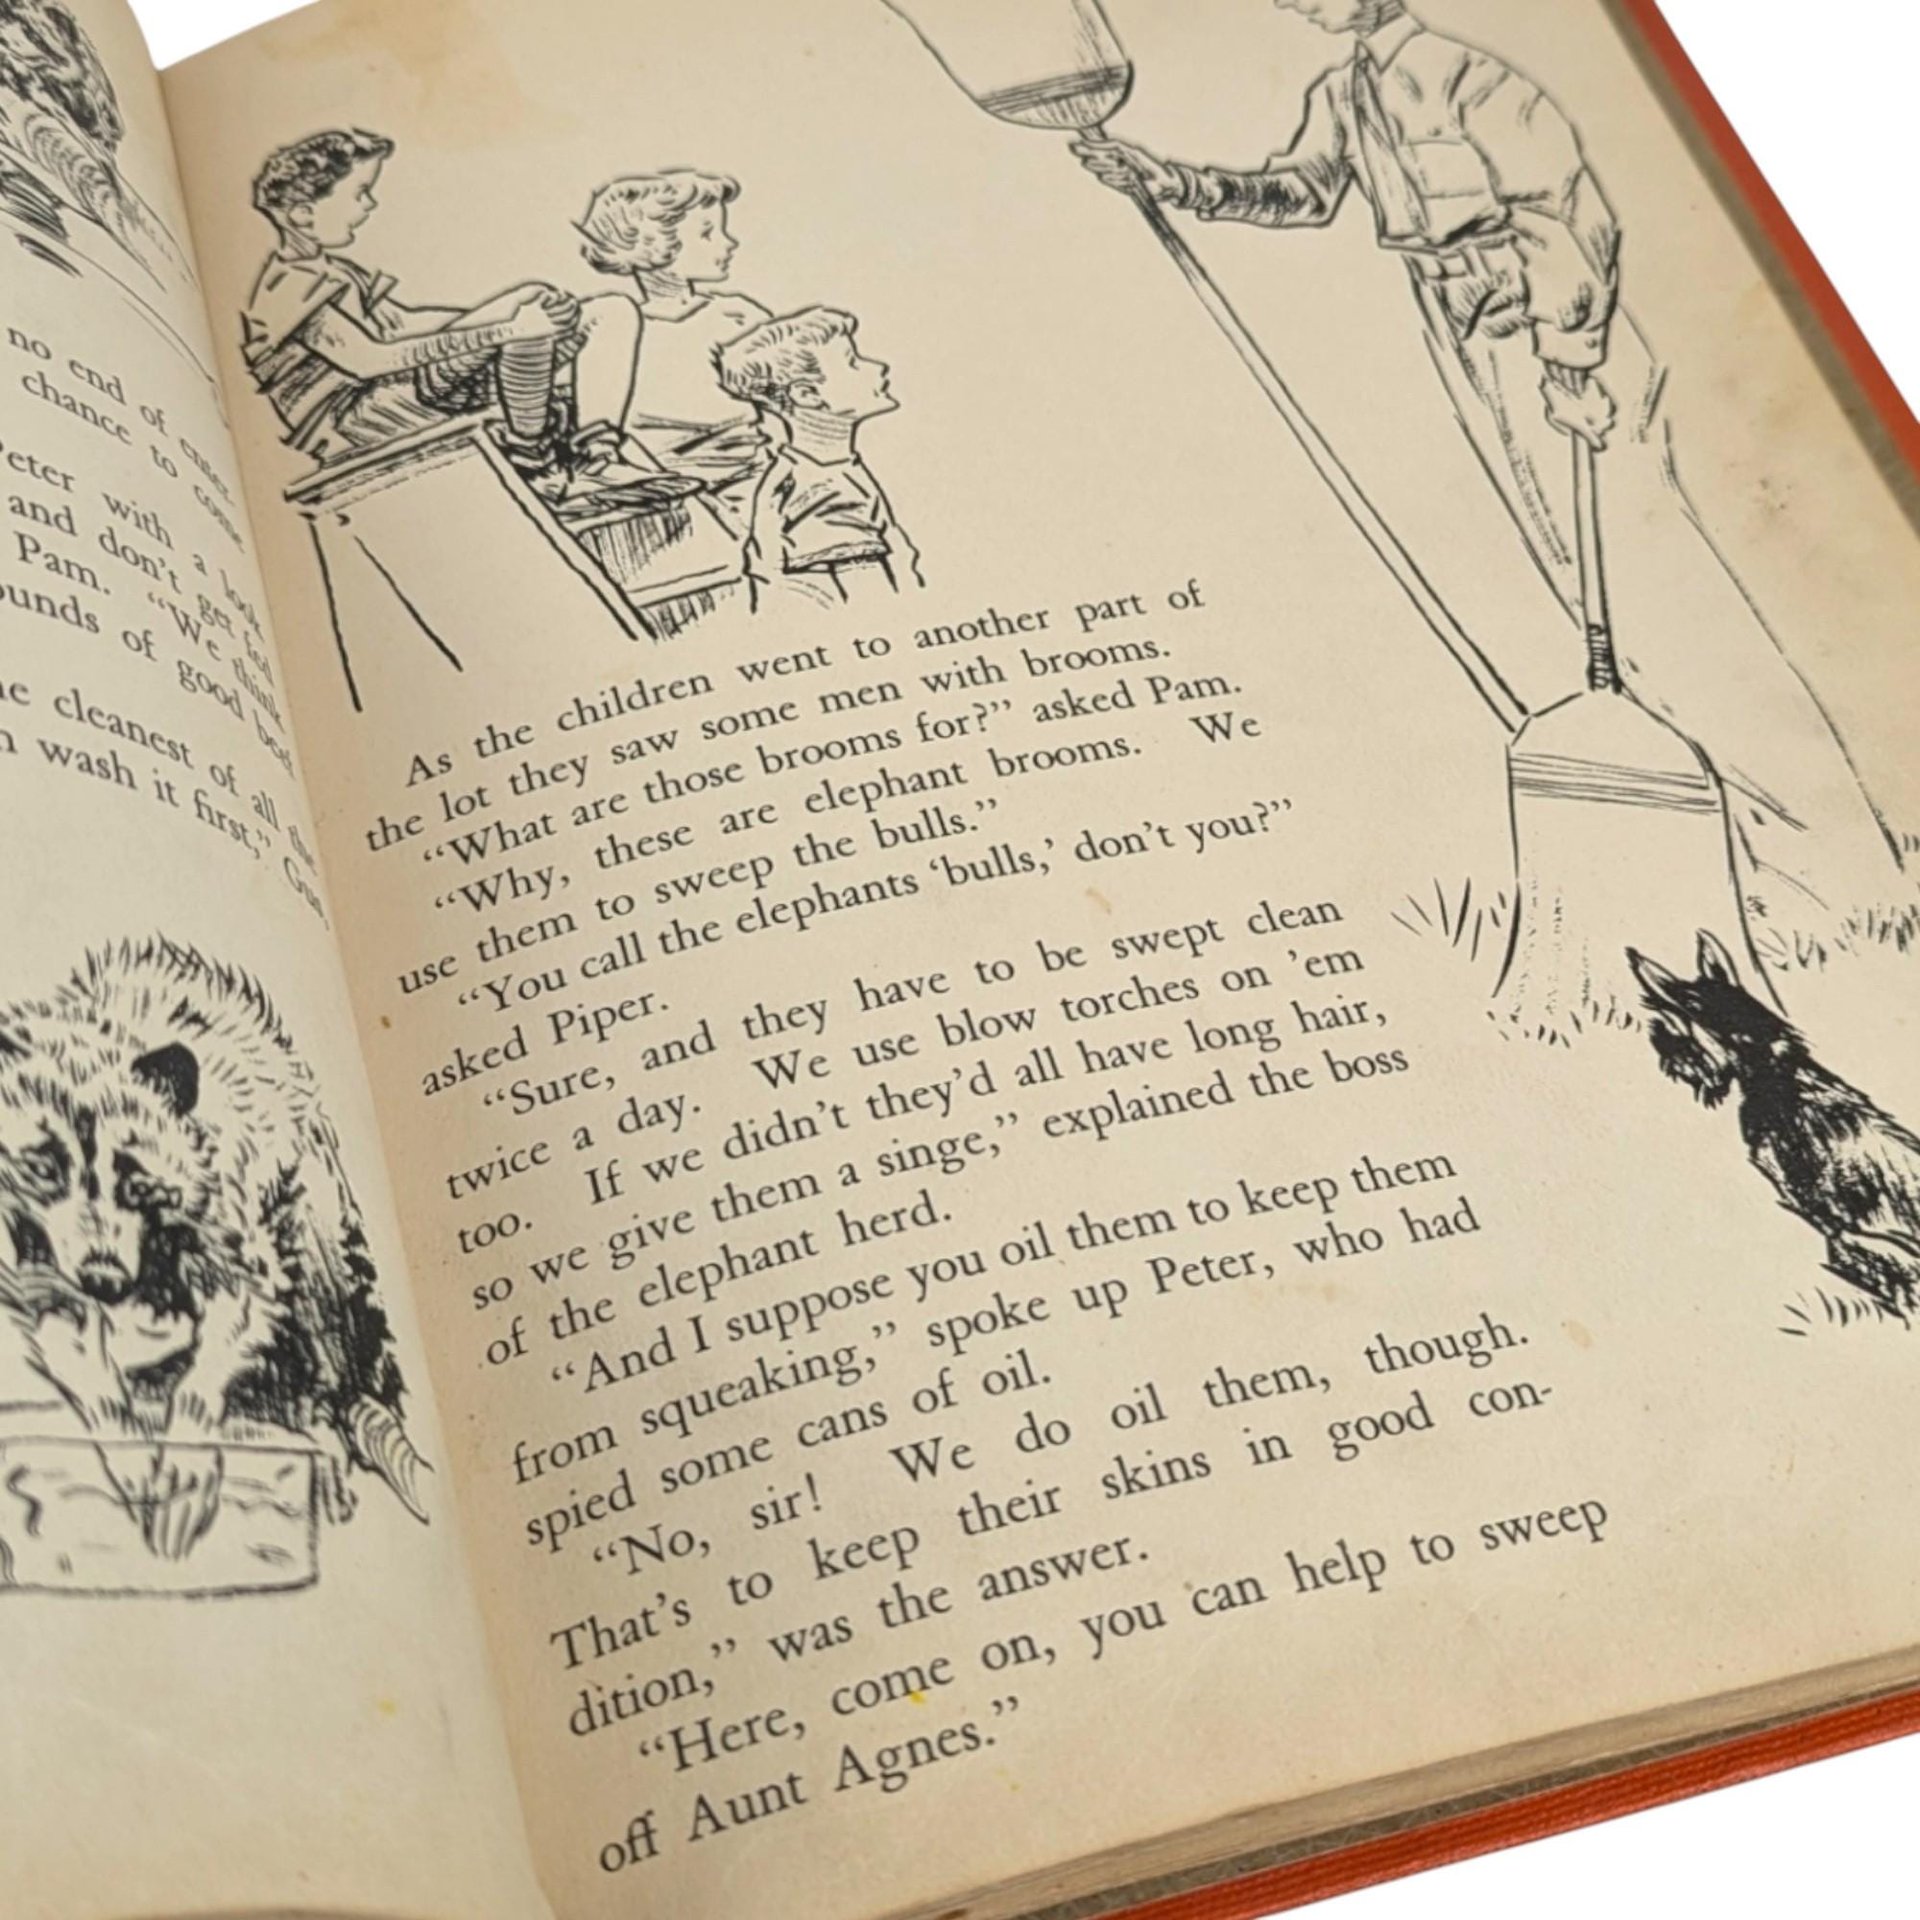 no end of enter-
chance to come
Peter with a look
and don't get fed
Pam. "We think
pounds of good bod
he cleanest of all the
wash it first," Gus
As the children went to another part of
the lot they saw some men with brooms.
"What are those brooms for?" asked Pam.
"Why, these are elephant brooms. We
use them to sweep the bulls."
"You call the elephants 'bulls,' don't you?"
asked Piper.
"Sure, and they have to be swept clean
twice a day. We use blow torches on 'em
too. If we didn't they'd all have long hair,
so we give them a singe," explained the boss
of the elephant herd.
"And I suppose you oil them to keep them
from squeaking," spoke up Peter, who had
spied some cans of oil.
"No, sir! We do oil them, though.
That's to keep their skins in good con-
dition," was the answer.
"Here, come on, you can help to sweep
off Aunt Agnes."